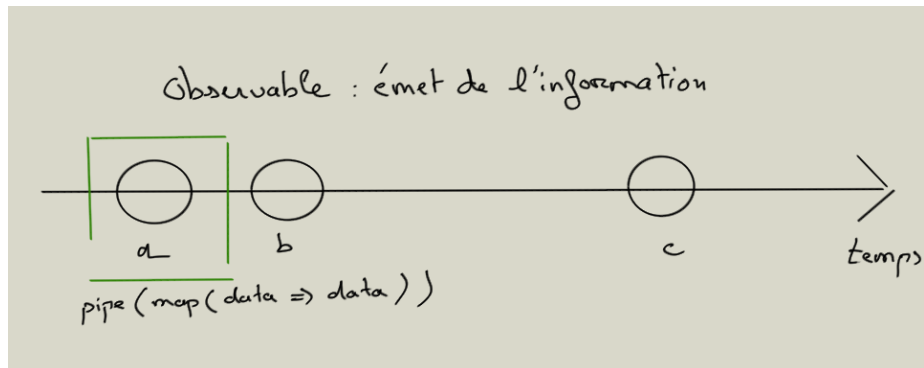 Observable : émet de l'information
a
b
c
temps
pipe (map ( data => data ) )